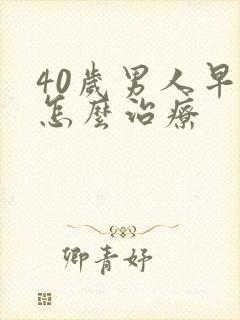 40歲男人早
怎麼治療
卿青妤